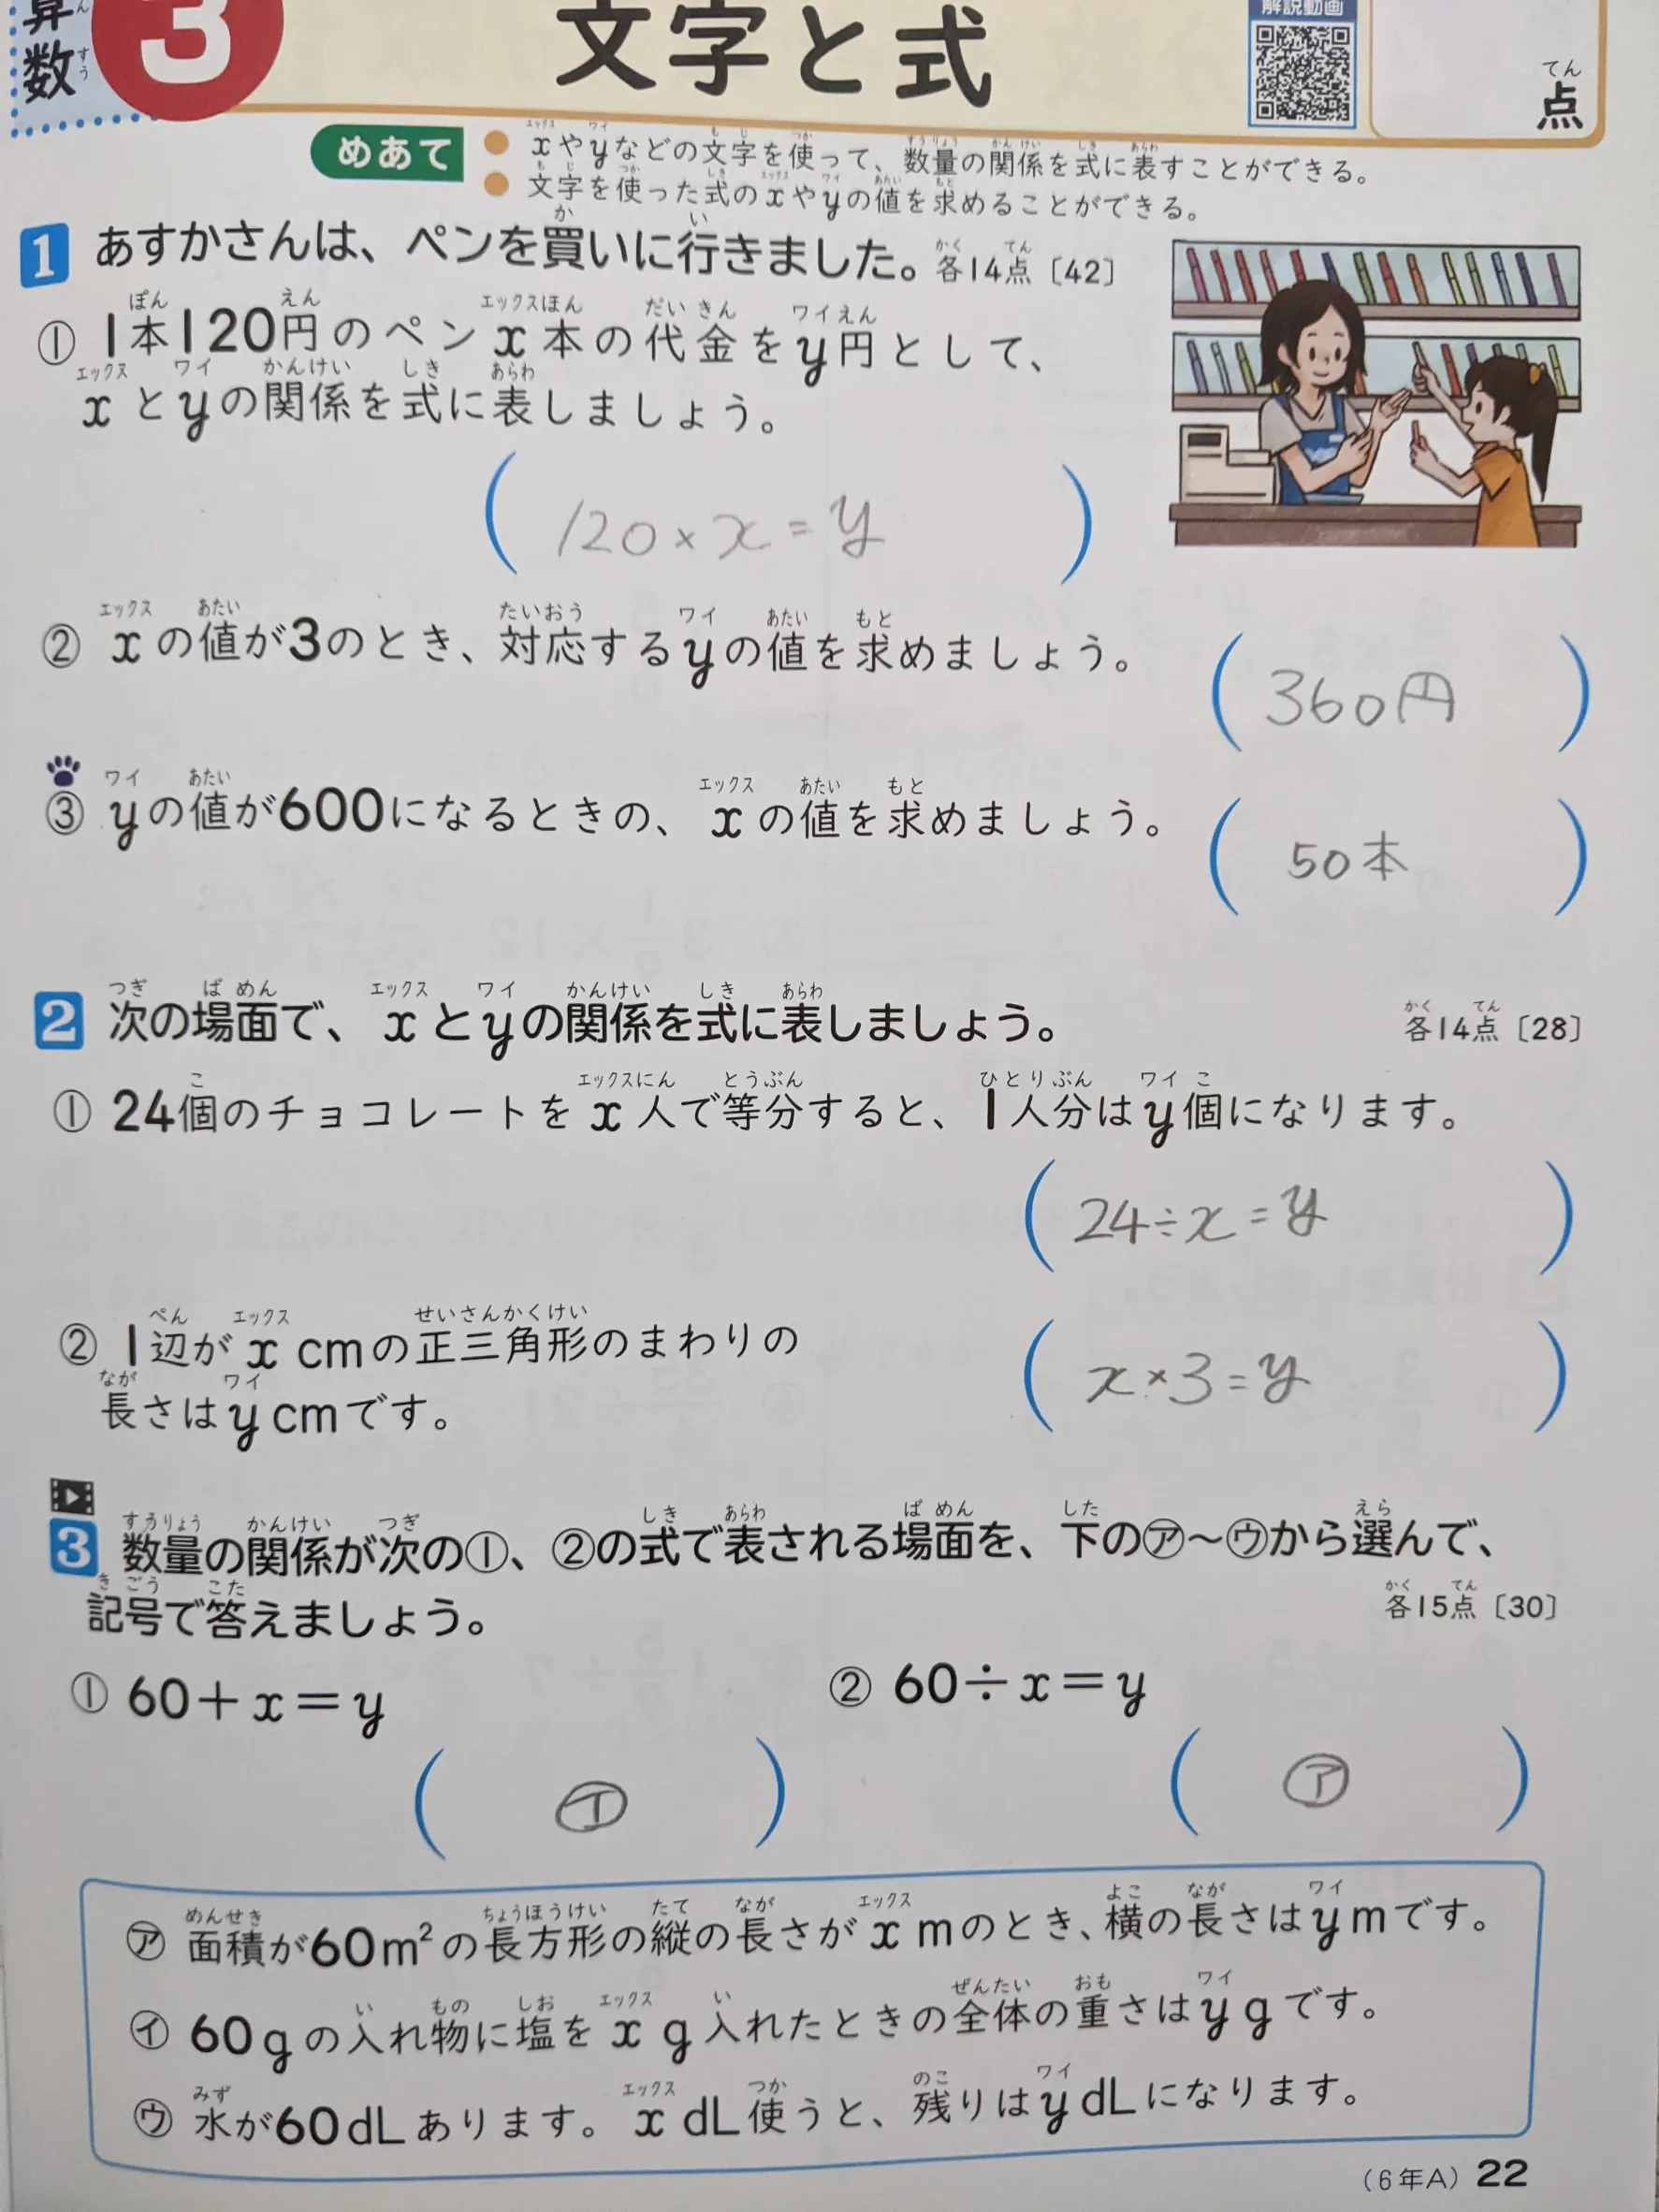 算数 3 文字と式
解説動画
点
めあて
xやyなどの文字を使って、数量の関係を式に表すことができる。
文字を使った式のxやyの値を求めることができる。
1 あすかさんは、ペンを買いに行きました。各14点〔42〕
① 1本120円のペンx本の代金をy円として、
xとyの関係を式に表しましょう。
(120×x=y)
② xの値が3のとき、対応するyの値を求めましょう。
(360円)
③ yの値が600になるときの、xの値を求めましょう。
(50本)
2 次の場面で、xとyの関係を式に表しましょう。 各14点〔28〕
① 24個のチョコレートをx人で等分すると、1人分はy個になります。
(24÷x=y)
② 1辺がx cmの正三角形のまわりの
長さはy cmです。
(x×3=y)
3 数量の関係が次の①、②の式で表される場面を、下の㋐〜㋒から選んで、
記号で答えましょう。 各15点〔30〕
① 60+x=y ② 60÷x=y
(㋑) (㋐)
㋐ 面積が60m²の長方形の縦の長さがx mのとき、横の長さはy mです。
㋑ 60gの入れ物に塩をx g入れたときの全体の重さはy gです。
㋒ 水が60dLあります。x dL使うと、残りはy dLになります。
(6年A) 22